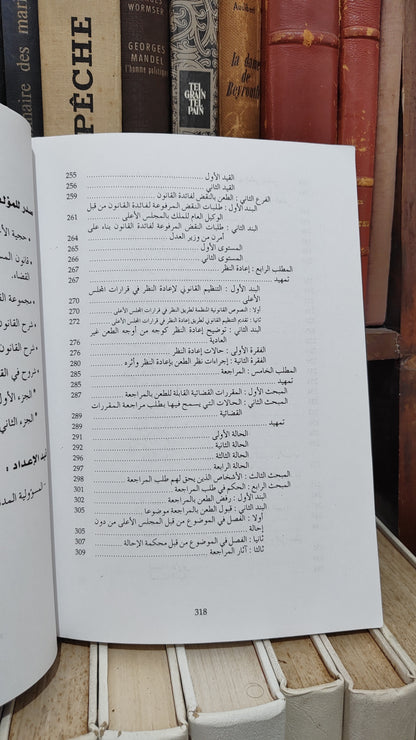 WORMSER
GEORGES
MANDEL
l'homme politique
PÊCHE
TEL
GRAIN
TEL
PAIN
la dame
de
Beyrouth
القيد الأول 255
القيد الثاني 256
الفرع الثاني : الطعن بالنقض لفائدة القانون 259
البند الأول : طلبات النقض المرفوعة لفائدة القانون من قبل
الوكيل العام للملك بالمجلس الأعلى 261
البند الثاني : طلبات النقض المرفوعة لفائدة القانون بناء على
أمرن من وزير العدل 264
المستوى الأول 265
المستوى الثاني 266
المطلب الرابع : إعادة النظر 267
تمهيد 267
البند الأول : التنظيم القانوني لإعادة النظر في قرارات المجلس
الأعلى 270
أولا : النصوص القانونية المنظمة لطريق النظر في قرارات المجلس الأعلى 270
ثانيا : تقادم التنظيم القانوني لطريق إعادة النظر في قرارات المجلس الأعلى 272
البند الثاني : توضيح إعادة النظر كوجه من أوجه الطعن غير
العادية 276
الفقرة الأولى : حالات إعادة النظر 277
الفقرة الثانية : إجراءات نظر الطعن بإعادة النظر وأثره 280
المطلب الخامس : المراجعة 285
تمهيد 285
المبحث الأول : المقررات القضائية القابلة للطعن بالمراجعة 287
المبحث الثاني : الحالات التي يسمح فيها بطلب مراجعة المقررات
القضائية 289
تمهيد 289
الحالة الأولى 291
الحالة الثانية 292
الحالة الثالثة 293
الحالة الرابعة 295
المبحث الثالث : الأشخاص الذين يحق لهم طلب المراجعة 298
المبحث الرابع : الحكم في طلب المراجعة 301
البند الأول : رفض الطعن بالمراجعة 302
البند الثاني : قبول الطعن بالمراجعة موضوعا 305
أولا : الفصل في الموضوع من قبل المجلس الأعلى من دون
إحالة 305
ثانيا : الفصل في الموضوع من قبل محكمة الإحالة 307
ثالثا : آثار المراجعة 309
318
صدر للمؤلف
• حجية
• قانون
القضاء.
• مجموعة
• شرح القانون
• شرح القانون
• شروح في
* الجزء الأول
* الجزء الثاني
قيد الإعداد :
- المسؤولية